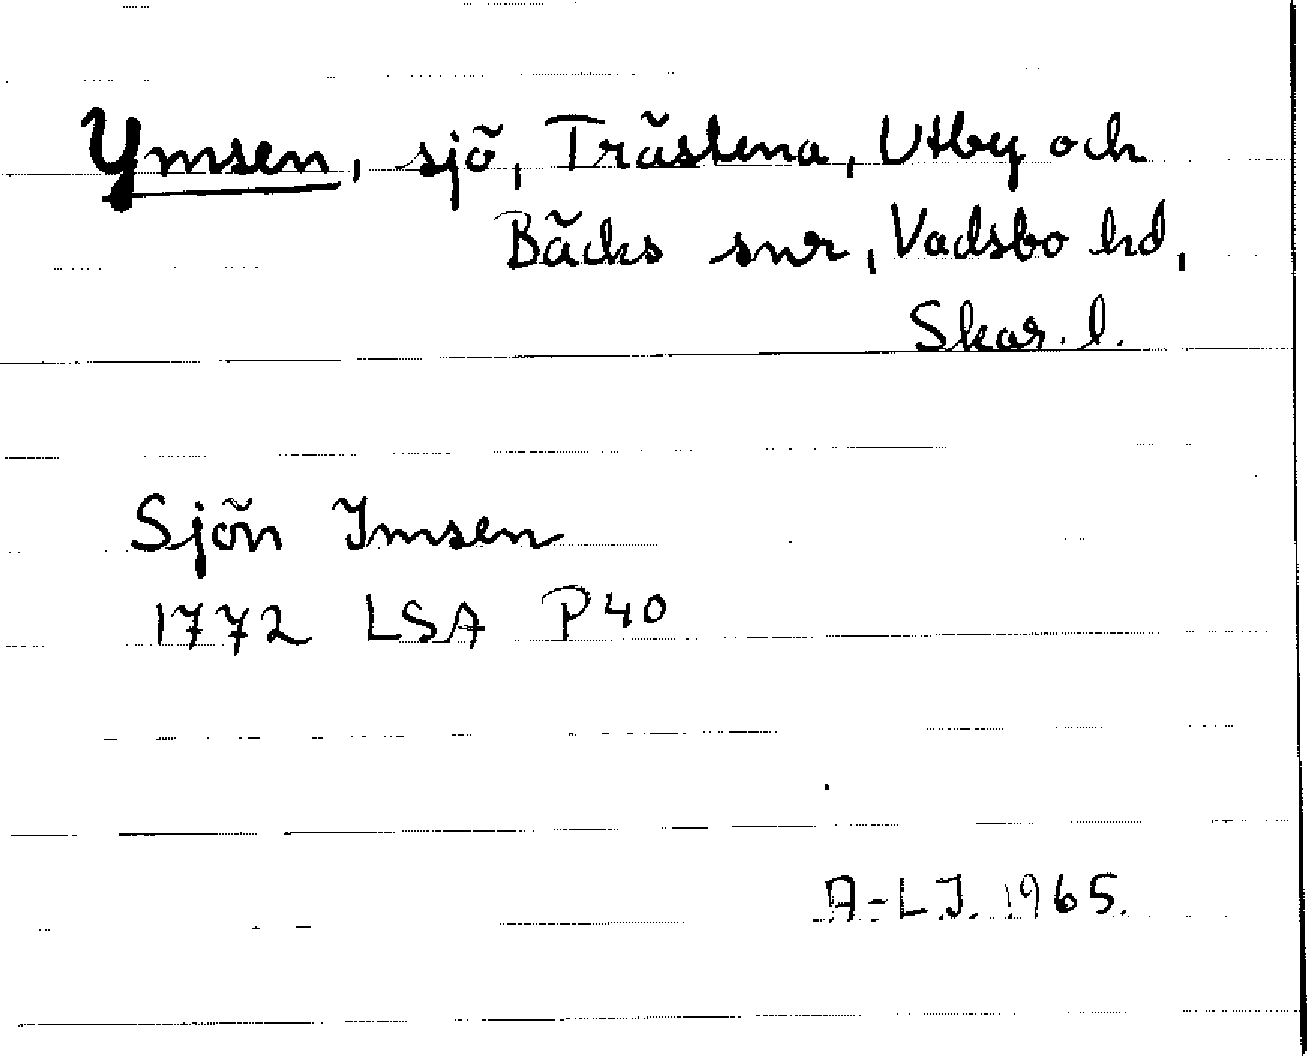 Ymsen, sjö, Trästena, Utby och
Bäcks snr, Vadsbo hd,
Skar. l.
Sjön Imsen
1772 LSA P40
A-L J. 1965.